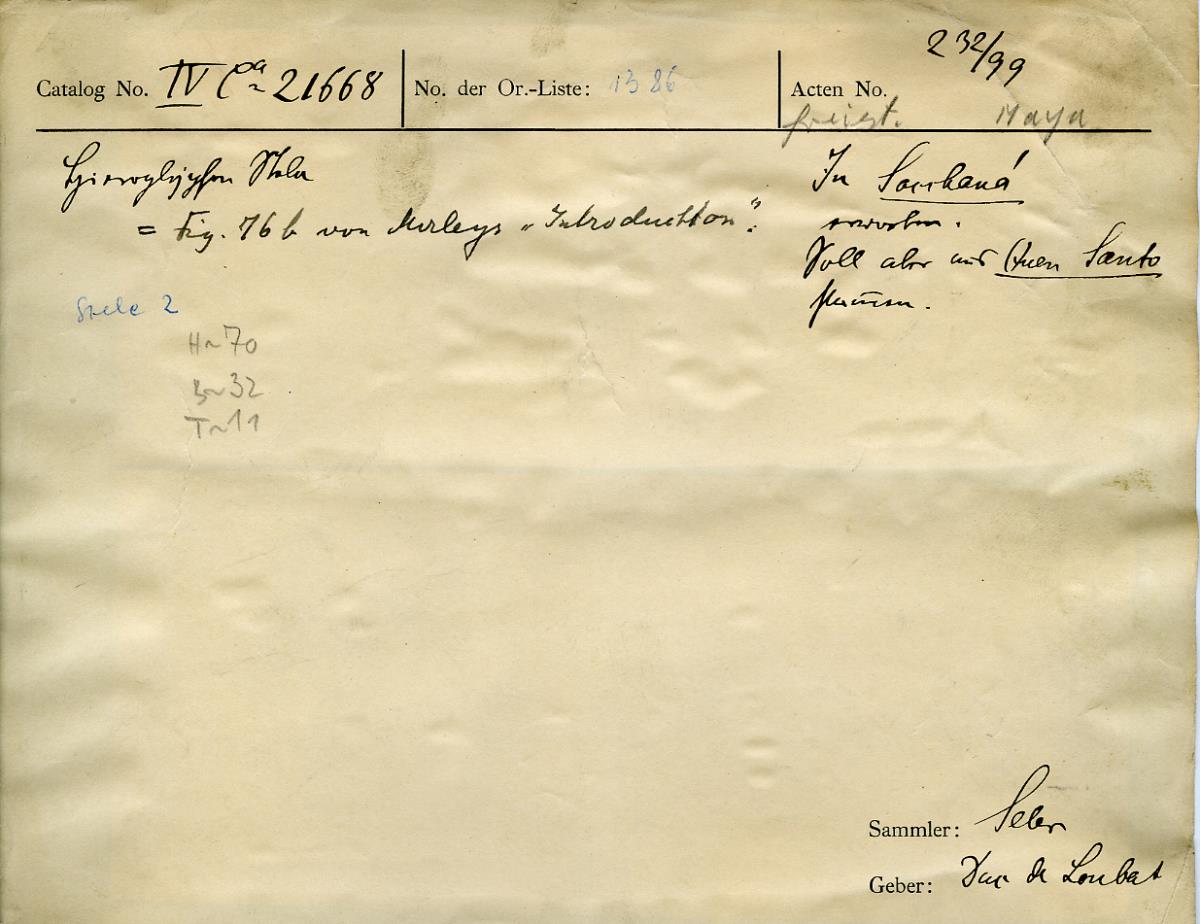 232/99
Catalog No. IV Ca 21668
No. der Or.-Liste: 1386
Acten No.
Maya
Hieroglyphen Stele
= Fig. 76 b von Morleys „Introduction“.
Stele 2
H~70
B~32
T~11
In Sacchaná
erworben.
Soll aber aus Quen Santo
stammen.
Sammler: Seler
Geber: Duc de Loubat